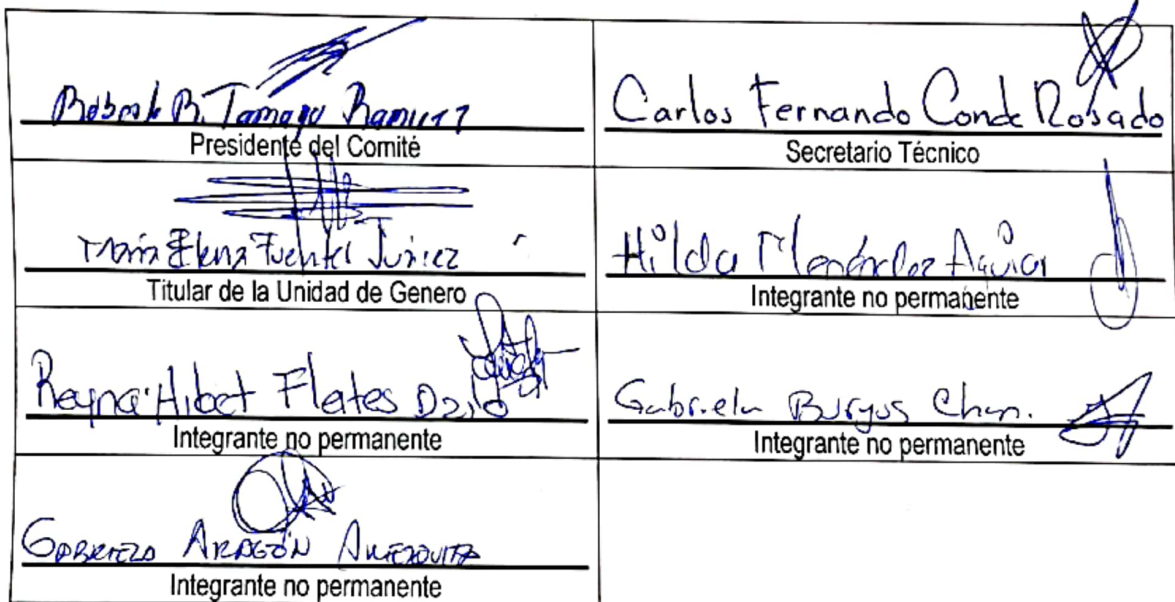 B. Tamayo Ramirez
Presidente del Comité
Carlos Fernando Conde Rosado
Secretario Técnico
María Elena Fuentes Juárez
Titular de la Unidad de Genero
Hilda Menéndez Aguiar
Integrante no permanente
Reyna Hibet
Integrante no permanente
Gabriela Burgos Chan.
Integrante no permanente
ARAGÓN AMEZQUITA
Integrante no permanente